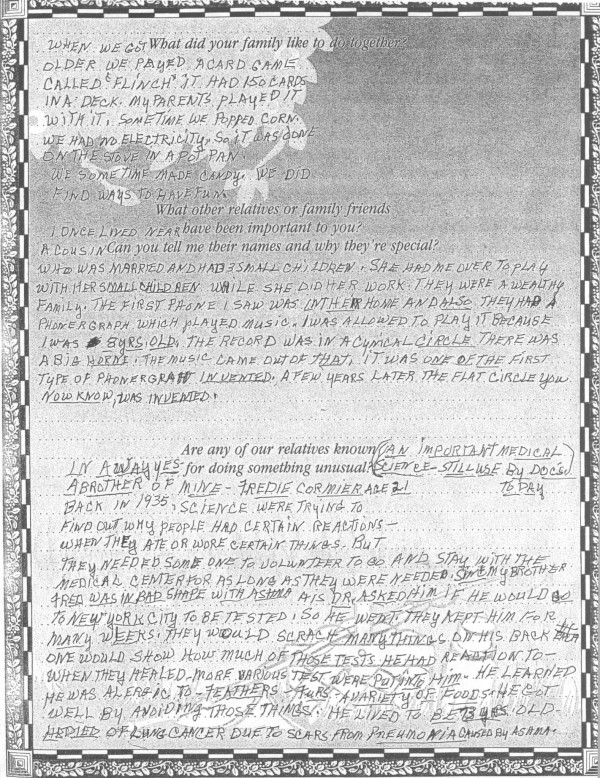 WHEN WE GOT What did your family like to do together?
OLDER WE PAYED A CARD GAME
CALLED "FLINCH" IT HAD 150 CARDS
IN A DECK. MY PARENTS PLAYED IT
WITH IT, SOMETIME WE POPPED CORN.
WE HAD NO ELECTRICITY, SO IT WAS DONE
ON THE STOVE IN A POT PAN.
WE SOMETIME MADE CANDY. WE DID
FIND WAYS TO HAVE FUN.
What other relatives or family friends
I ONCE LIVED NEAR have been important to you?
A COUSIN Can you tell me their names and why they're special?
WHO WAS MARRIED AND HAD 3 SMALL CHILDREN. SHE HAD ME OVER TO PLAY
WITH HER SMALL CHILDREN WHILE SHE DID HER WORK. THEY WERE A WEALTHY
FAMILY. THE FIRST PHONE I SAW WAS IN THER HOME AND ALSO THEY HAD A
PHONERGRAPH WHICH PLAYED MUSIC. I WAS ALLOWED TO PLAY IT BECAUSE
I WAS 8 YRS. OLD. THE RECORD WAS IN A CYNICAL CIRCLE THERE WAS
A BIG HORNE. THE MUSIC CAME OUT OF THAT. IT WAS ONE OF THE FIRST
TYPE OF PHONERGRAPH INVENTED. A FEW YEARS LATER THE FLAT CIRCLE YOU
NOW KNOW, WAS INVENTED.
Are any of our relatives known (AN IMPORTANT MEDICAL
IN A WAY YES for doing something unusual? SCIENCE-STILL USE BY DOCS.)
A BROTHER OF MINE - FREDIE CORMIER AGE 21 TO DAY
BACK IN 1935, SCIENCE WERE TRYING TO
FIND OUT WHY PEOPLE HAD CERTAIN REACTIONS -
WHEN THEY ATE OR WORE CERTAIN THINGS. BUT
THEY NEEDED SOME ONE TO VOLUNTEER TO GO AND STAY WITH THE
MEDICAL CENTER FOR AS LONG AS THEY WERE NEEDED. SINCE MY BROTHER
FRED WAS IN BAD SHAPE WITH ASMA HIS DR. ASKED HIM IF HE WOULD GO
TO NEW YORK CITY TO BE TESTED, SO HE WENT. THEY KEPT HIM FOR
MANY WEEKS. THEY WOULD SCRACH MANY THINGS ON HIS BACK THEN
ONE WOULD SHOW HOW MUCH OF THOSE TESTS HE HAD REACTION TO -
WHEN THEY HEALED - MORE VARIOUS TEST WERE PUT INTO HIM - HE LEARNED
HE WAS ALERGIC TO - FEATHERS - FURS - A VARIETY OF FOODS. HE GOT
WELL BY AVOIDING THOSE THINGS. HE LIVED TO BE 73 YRS. OLD -
HE DIED OF LUNG CANCER DUE TO SCARS FROM PNEUMONIA CAUSED BY ASHMA.